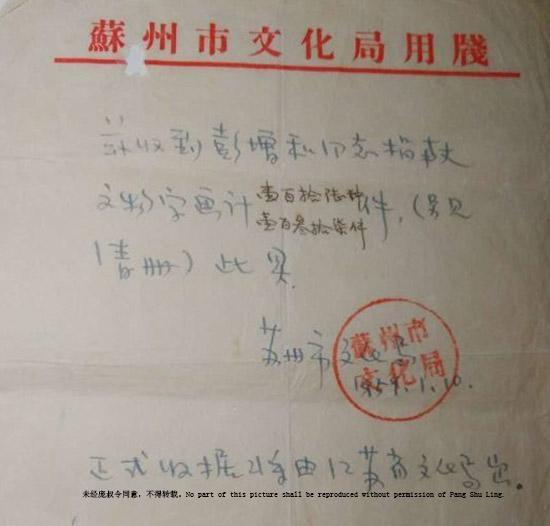 蘇州市文化局用牋
兹收到彭增和同志捐献
文物字画计壹百拾陆种
壹百叁拾柒件件,(另见
清册)此具.
苏州市文化局
蘇州市
文化局
1959.1.10.
正式收据将由江苏省文化局出。
未经庞叔令同意,不得转载。No part of this picture shall be reproduced without permission of Pang Shu Ling.